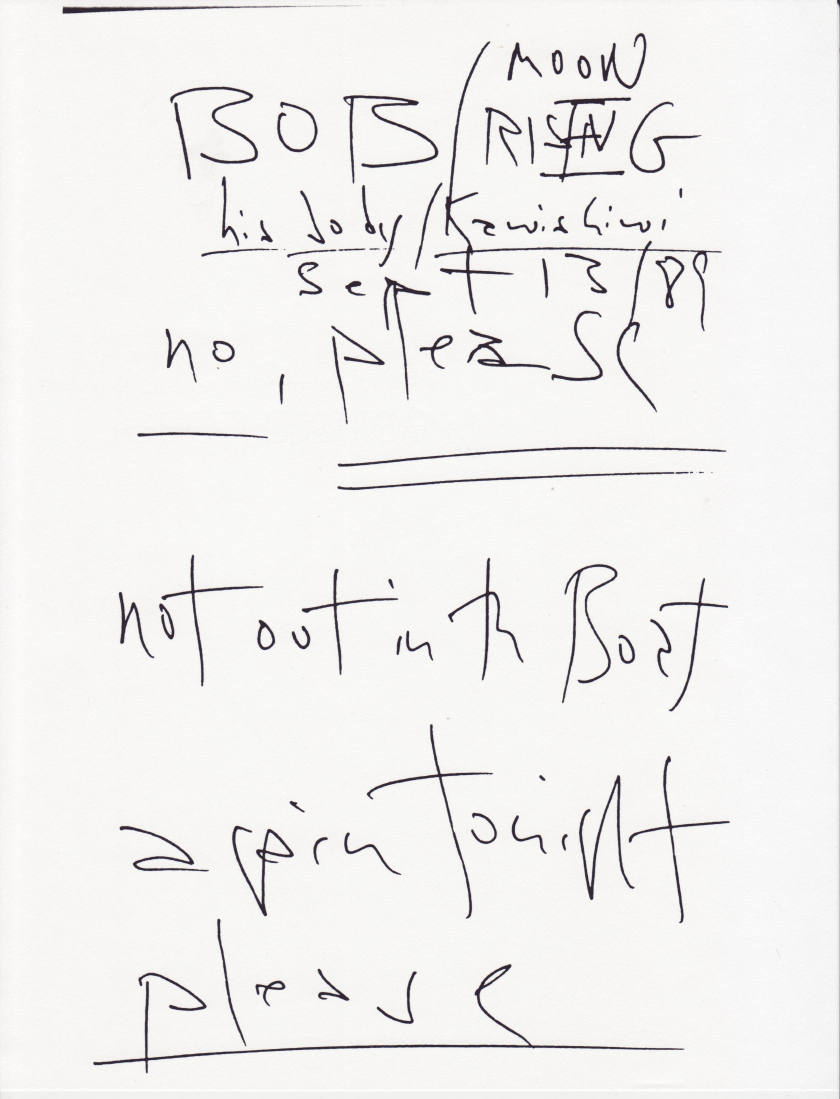 BOB / MOON RISING
his body / Kawishiwi
Sept 13/89
no, please
not out in th Boat
again tonight
please